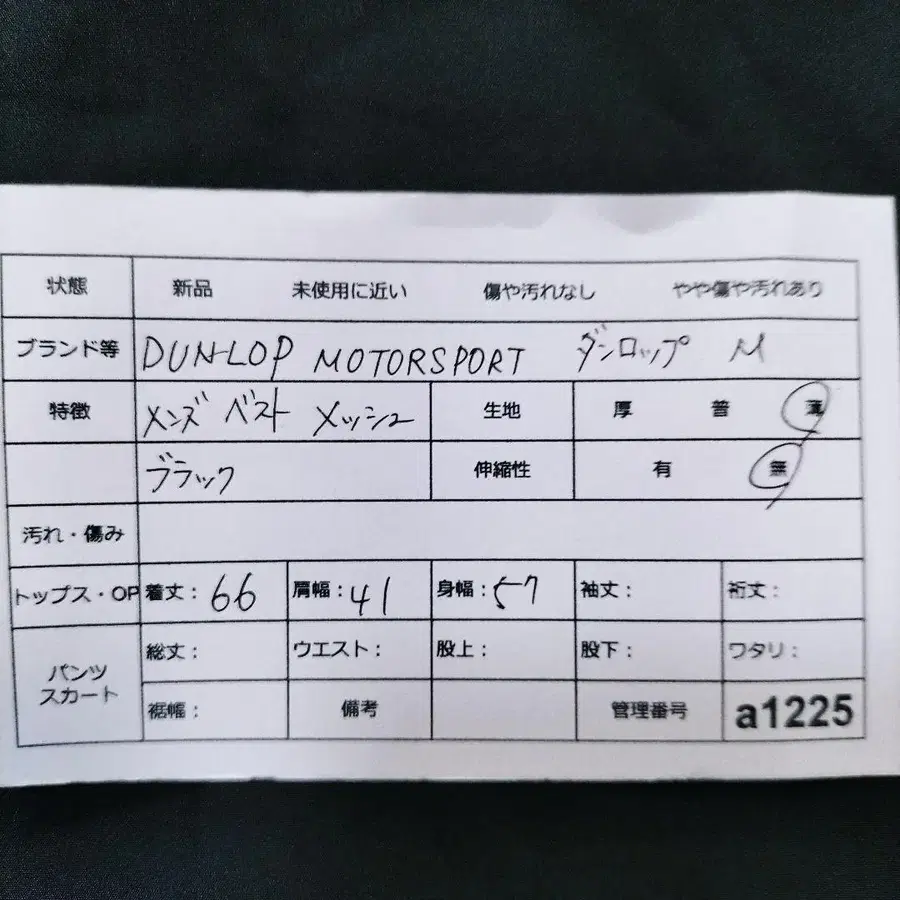 状態 新品 未使用に近い 傷や汚れなし やや傷や汚れあり
ブランド等 DUNLOP MOTORSPORT ダンロップ M
特徴 メンズ ベスト メッシュ 生地 厚 普 薄
ブラック 伸縮性 有 無
汚れ・傷み
トップス・OP 着丈: 66 肩幅: 41 身幅: 57 袖丈: 裄丈:
パンツ スカート 総丈: ウエスト: 股上: 股下: ワタリ:
裾幅: 備考 管理番号 a1225